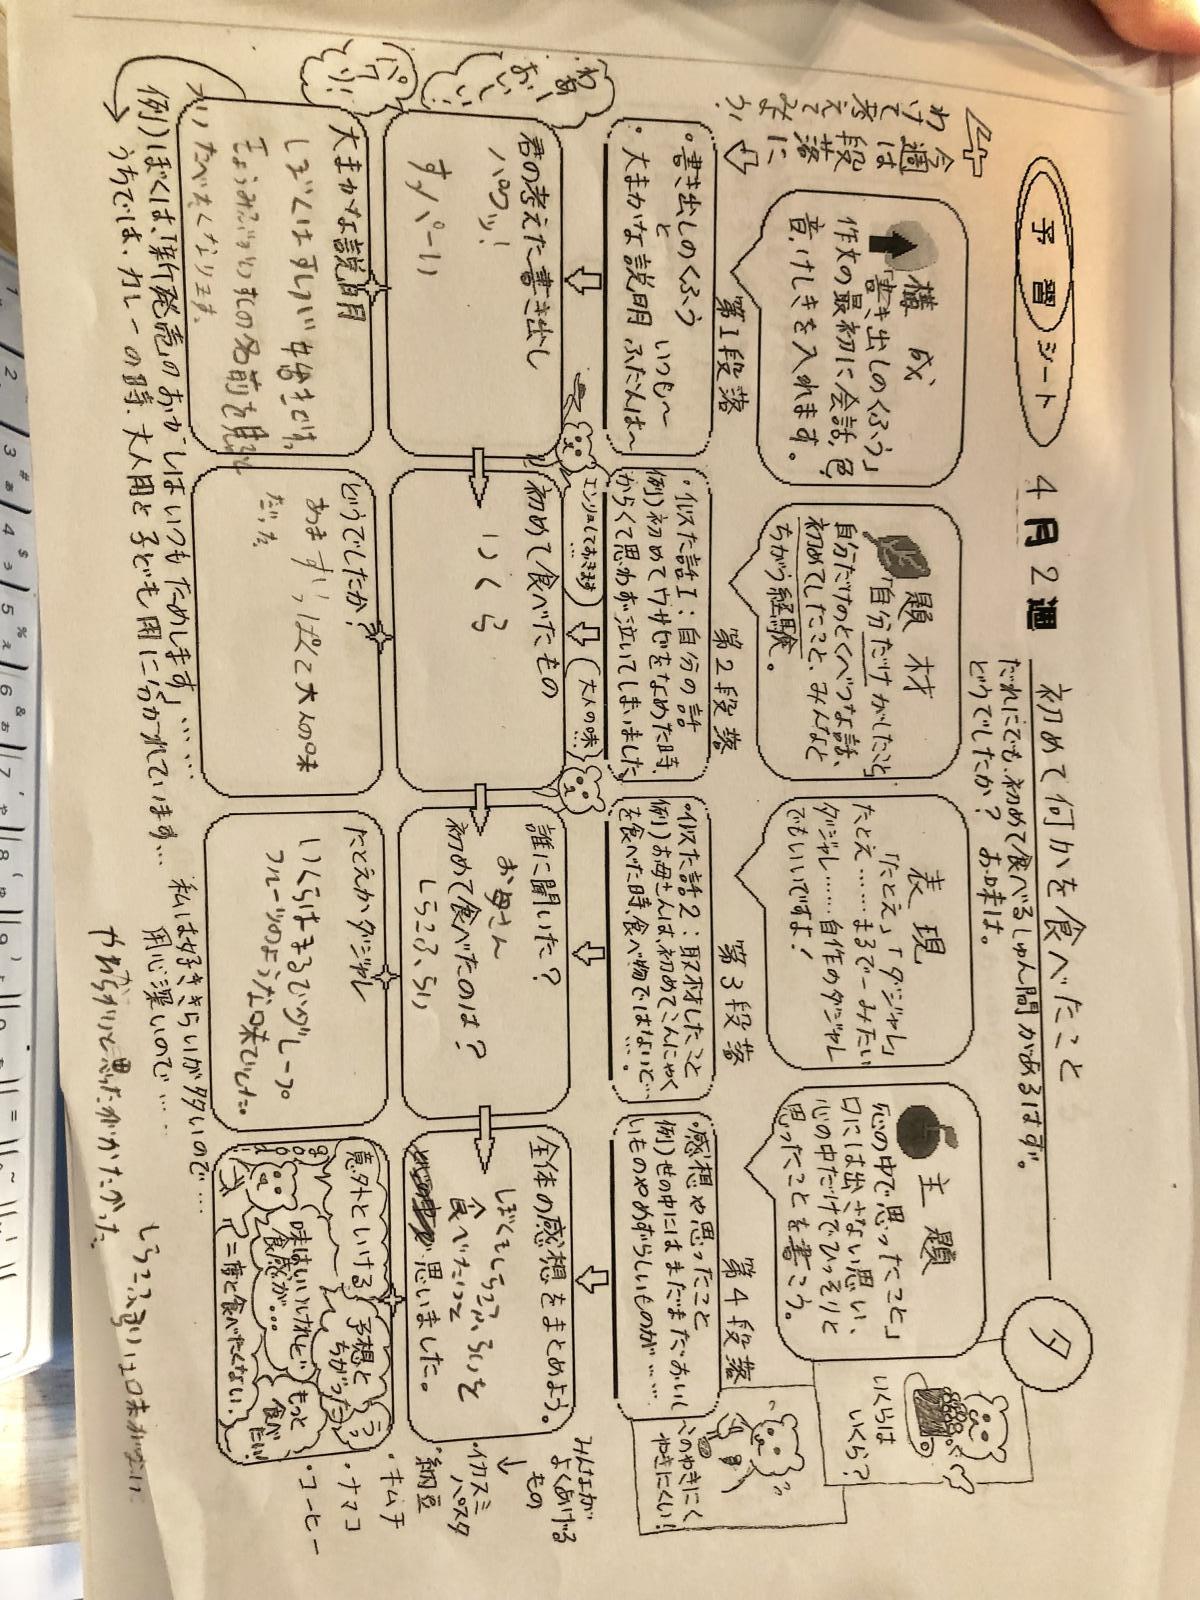 予習シート
4月2週
初めて何かを食べたこと
夕
だれにでも、初めて食べるしゅん間があるはず。
どうでしたか？お味は。
今週は段落に
わけて考えて
みよう！
構成
「書き出しのくふう」
作文の最初に会話、色、
音、けしきを入れます。
題材
「自分だけがしたこと」
自分だけのとくべつな話、
初めてしたこと、みんなと
ちがう経験。
表現
「たとえ」「ダジャレ」
たとえ……まるで～みたい
ダジャレ……自作のダジャレ
でもいいですよ！
主題
「心の中で思ったこと」
口には出さない思い、
心の中だけでひっそりと
思ったことを書こう。
いくらは
いくら？
第1段落
・書き出しのくふう
と
・大まかな説明
いつも～
ふだんは～
第2段落
・似た話1：自分の話
例）初めてワサビをなめた時、
からくて思わず泣いてしまいました
第3段落
・似た話2：取材したこと
例）お母さんは、初めてこんにゃく
を食べた時、食べ物ではないと…。
第4段落
・感想や思ったこと
例）世の中にはまだまだおいし
いものやめずらしいものが……
このやきにく
やきにくい！
わあ
おいしい
パクリ
エンリョしておきます…
大人の味…
君の考えた書き出し
パクッ！
すっぱーい
初めて食べたもの
いくら
誰に聞いた？
お母さん
初めて食べたのは？
しらこふらい
全体の感想をまとめよう。
ぼくもしらこふらいを
食べたいって
思いました。
みんなが
よくあげる
もの
↓
・イカスミ
パスタ
・納豆
・キムチ
・ナマコ
・コーヒー
大まかな説明
ぼくはすしが好きです。
たべたくなります。
どうでしたか？
あますっぱくて大人の味
だった
たとえかダジャレ
いくらはまるでグレープ
フルーツのような味でした。
意外といける
予想と
ちがった
味はいいけれど
食感が…
もっと
食べ
たい！
二度と食べたくない。
例）ぼくは、「新発売のおかしはいつもためします」……
うちでは、カレーの時、大人用と子ども用に分かれています…
私は好ききらいが多いので…
用心深いので…
やわらかいと思ったがかたかった。